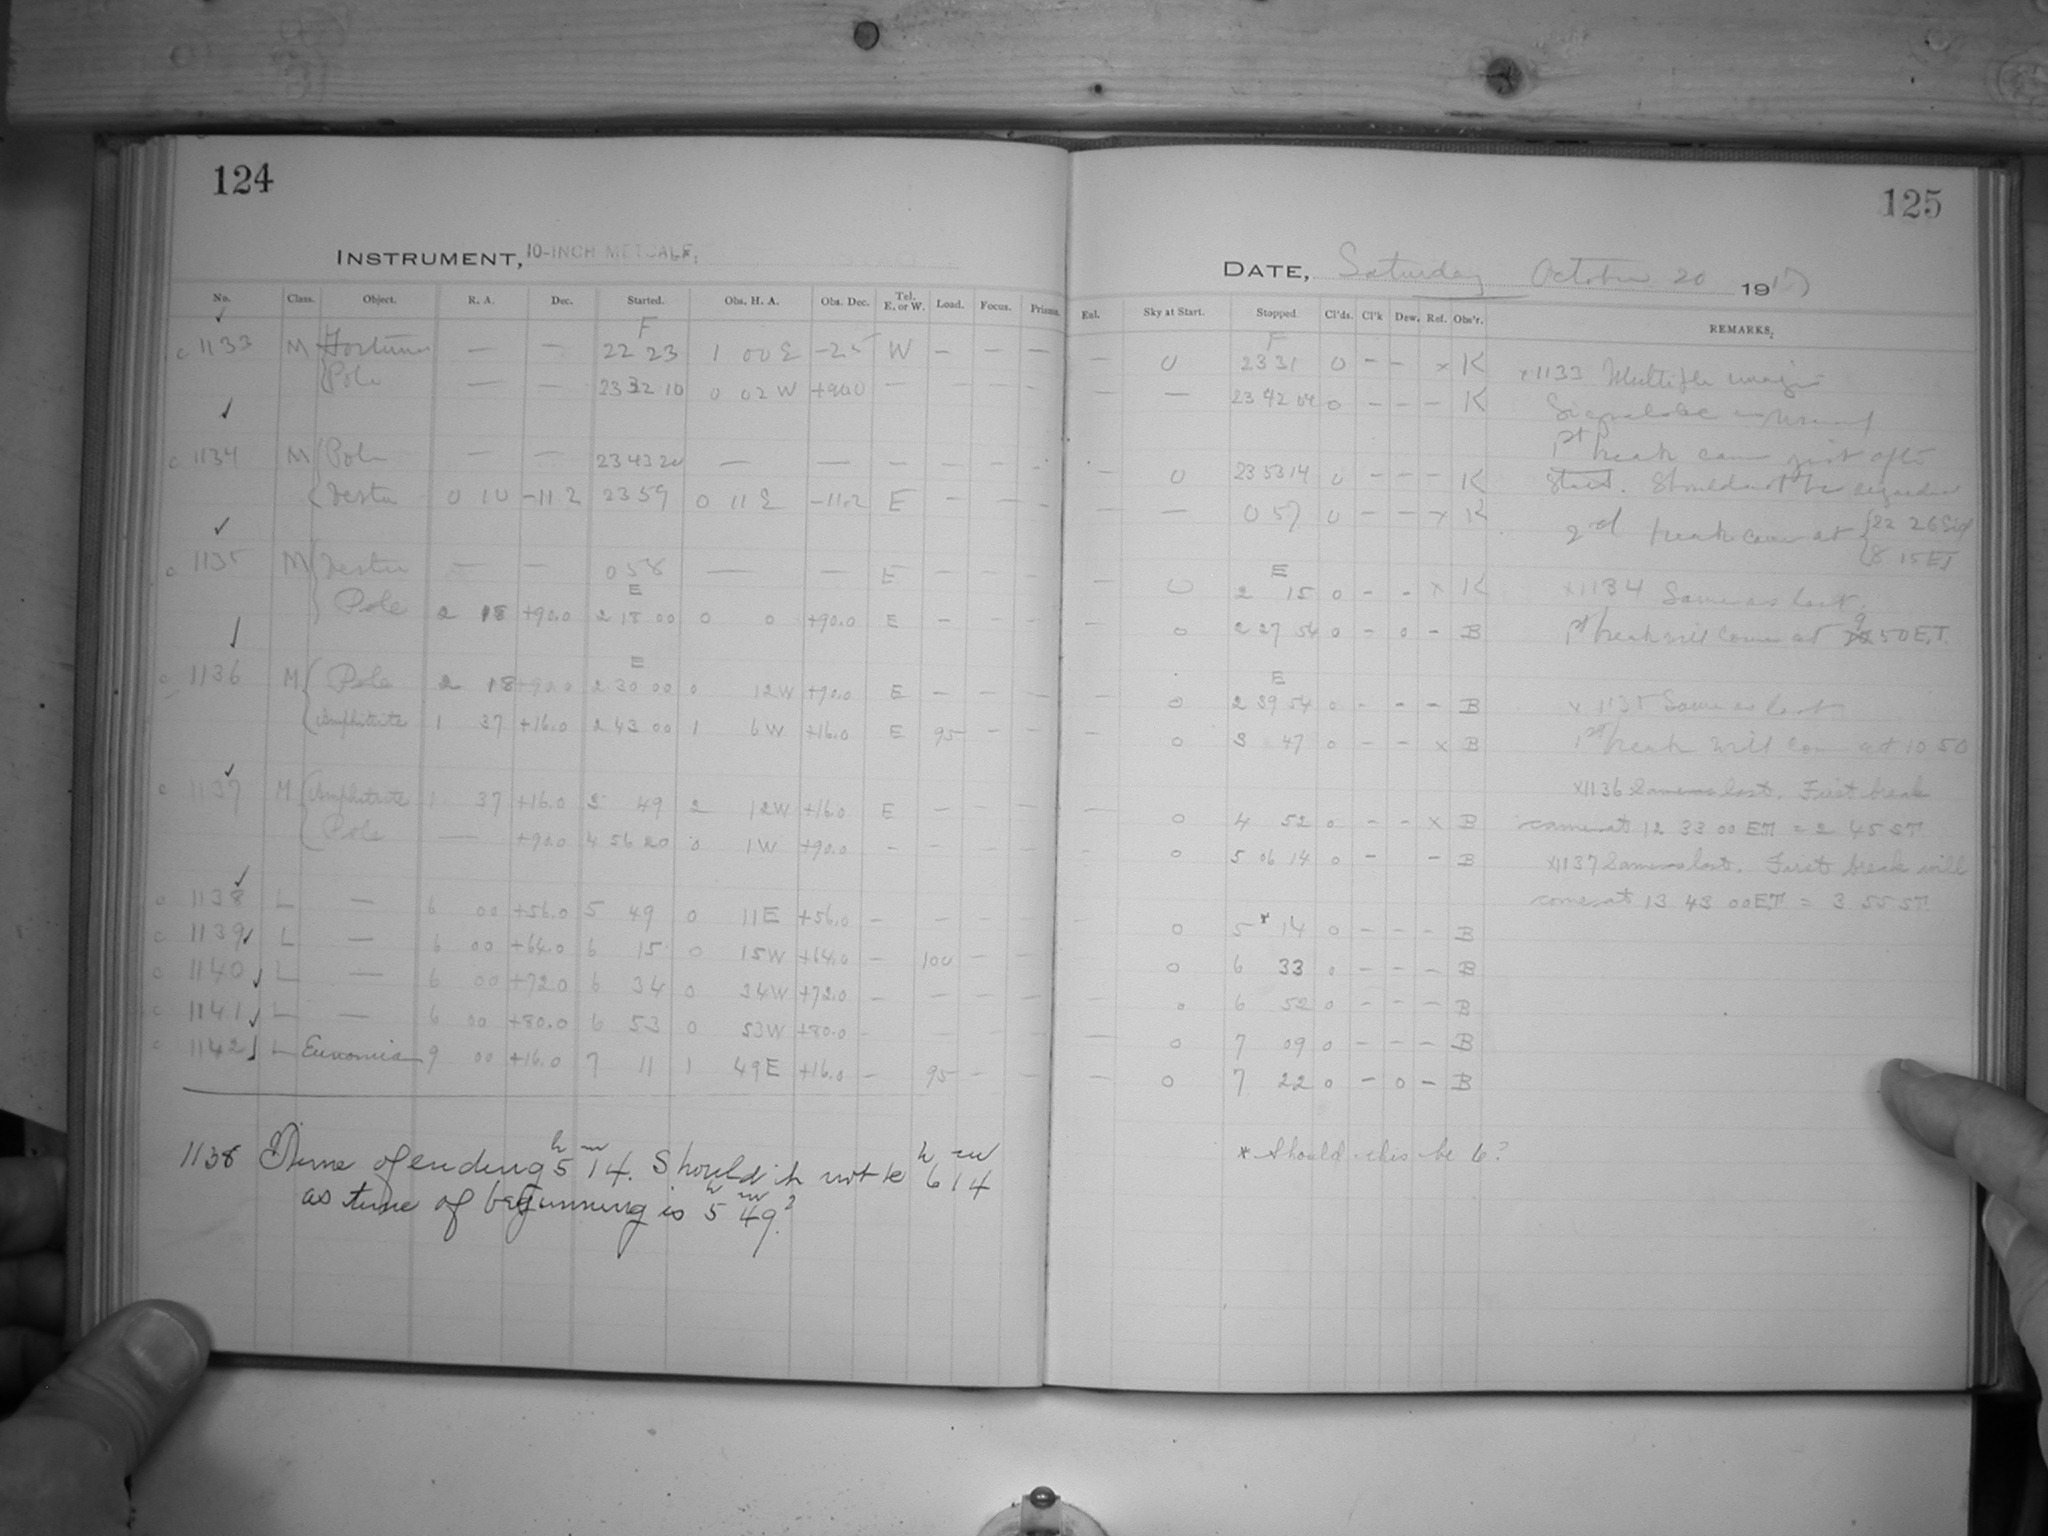 124
INSTRUMENT, 10-INCH METCALF.
No. Class. Object. R. A. Dec. Started. Obs. H. A. Obs. Dec. Tel. E. or W. Load. Focus. Prisms.
F
c 1133 M Fortuna — — 22 23 1 00 E -25 W — — —
Pole — — 23 32 10 0 02 W +90.0 — — — —
c 1134 M Pole — — 23 43 20 — — — — — -
Vesta 0 10 -11.2 23 59 0 11 E -11.2 E — — -
c 1135 M Vesta — — 0 58 — — E — — -
E
Pole 2 18 +90.0 2 18 00 0 0 +90.0 E — — —
E
c 1136 M Pole 2 18 +90.0 2 30 00 0 12W +90.0 E — — —
Amphitrite 1 37 +16.0 2 43 00 1 6W +16.0 E 95 — —
c 1137 M Amphitrite 1 37 +16.0 3 49 2 12W +16.0 E — — —
Pole — +90.0 4 56 20 0 1W +90.0 - — — —
c 1138 L — 6 00 +56.0 5 49 0 11E +56.0 - — — —
c 1139 L — 6 00 +64.0 6 15 0 15W +64.0 - 100 — —
c 1140 L — 6 00 +72.0 6 34 0 34W +72.0 - — — —
c 1141 L — 6 00 +80.0 6 53 0 53W +80.0 - — — —
c 1142 L Eunomia 9 00 +16.0 7 11 1 49E +16.0 - 95 — —
1138 Time of ending 5h 14m. Should it not be 6h 14m
as time of beginning is 5h 49m?
125
DATE, Saturday October 20 1917
Exl. Sky at Start. Stopped Cl'ds. Cl'k Dew. Ref. Obs'r. REMARKS.
F
— 0 23 31 0 - - x K
— — 23 42 04 0 - - - K
— 0 23 53 14 0 - - - K
— — 0 57 0 - - x K
E
— 0 2 15 0 - - x K
— 0 2 27 54 0 - 0 - B
E
— 0 2 39 54 0 - - - B
— 0 3 47 0 - - x B
— 0 4 52 0 - - x B
— 0 5 06 14 0 - - B
— 0 5* 14 0 - - - B
0 6 33 0 - - - B
— 0 6 52 0 - - - B
— 0 7 09 0 - - - B
— 0 7 22 0 - 0 - B
x1133 Multiple images
Signals as usual
1st break came just after
start. Should not be regarded
2nd break came at {22 26 Sid
{8 15 ET
x1134 Same as last.
1st break will come at 9 50 E.T.
x 1135 Same as last
1st break will come at 10 50
x1136 Same as last. First break
came at 12 33 00 ET = 2 45 ST
x1137 Same as last. First break will
come at 13 43 00 ET = 3 55 ST.
* Should this be 6?